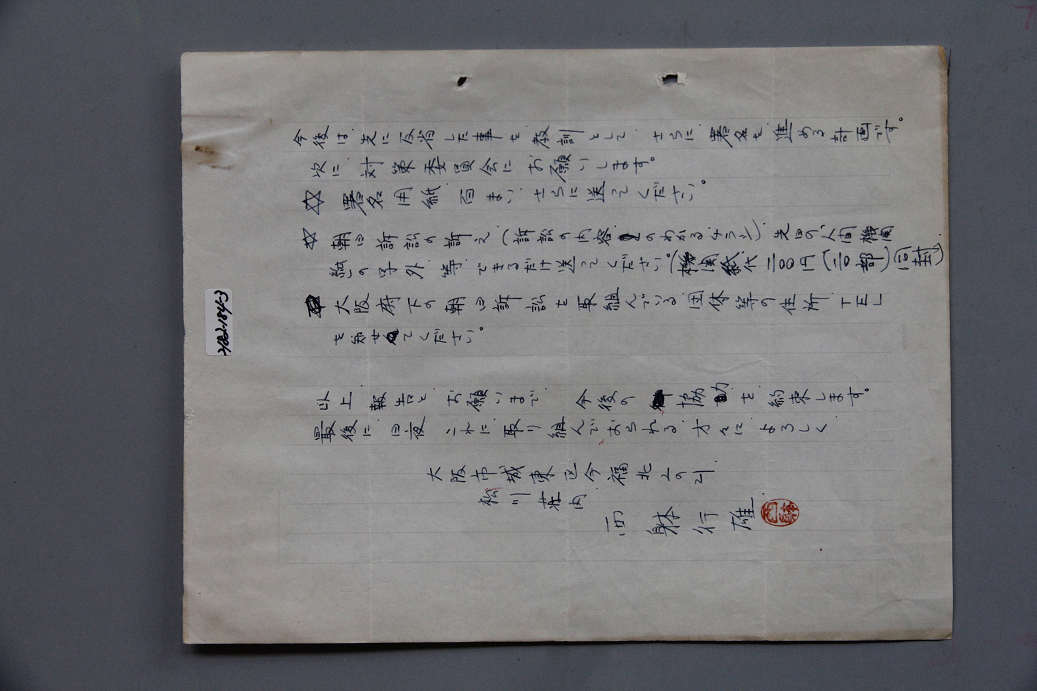 今後は先に反省した事を教訓として さらに署名を進める計画です。
次に対策委員会にお願いします。
☆ 署名用紙 百まい さらに送ってください。
☆ 朝日訴訟の訴え(訴訟の内容のわかるような)先日の"人間"機関
紙の号外 等できるだけ送ってください。(機関紙代二〇〇円(二〇部)同封)
大阪府下の朝日訴訟を取組んでいる団体等の住所 TEL
を知せてください。
以上 報告と お願いまで 今後の協助を約束します。
最後に 日夜 これに取り組んでおられる方々に よろしく
大阪市城東区今福北2の21
松川荘内
西躰行雄